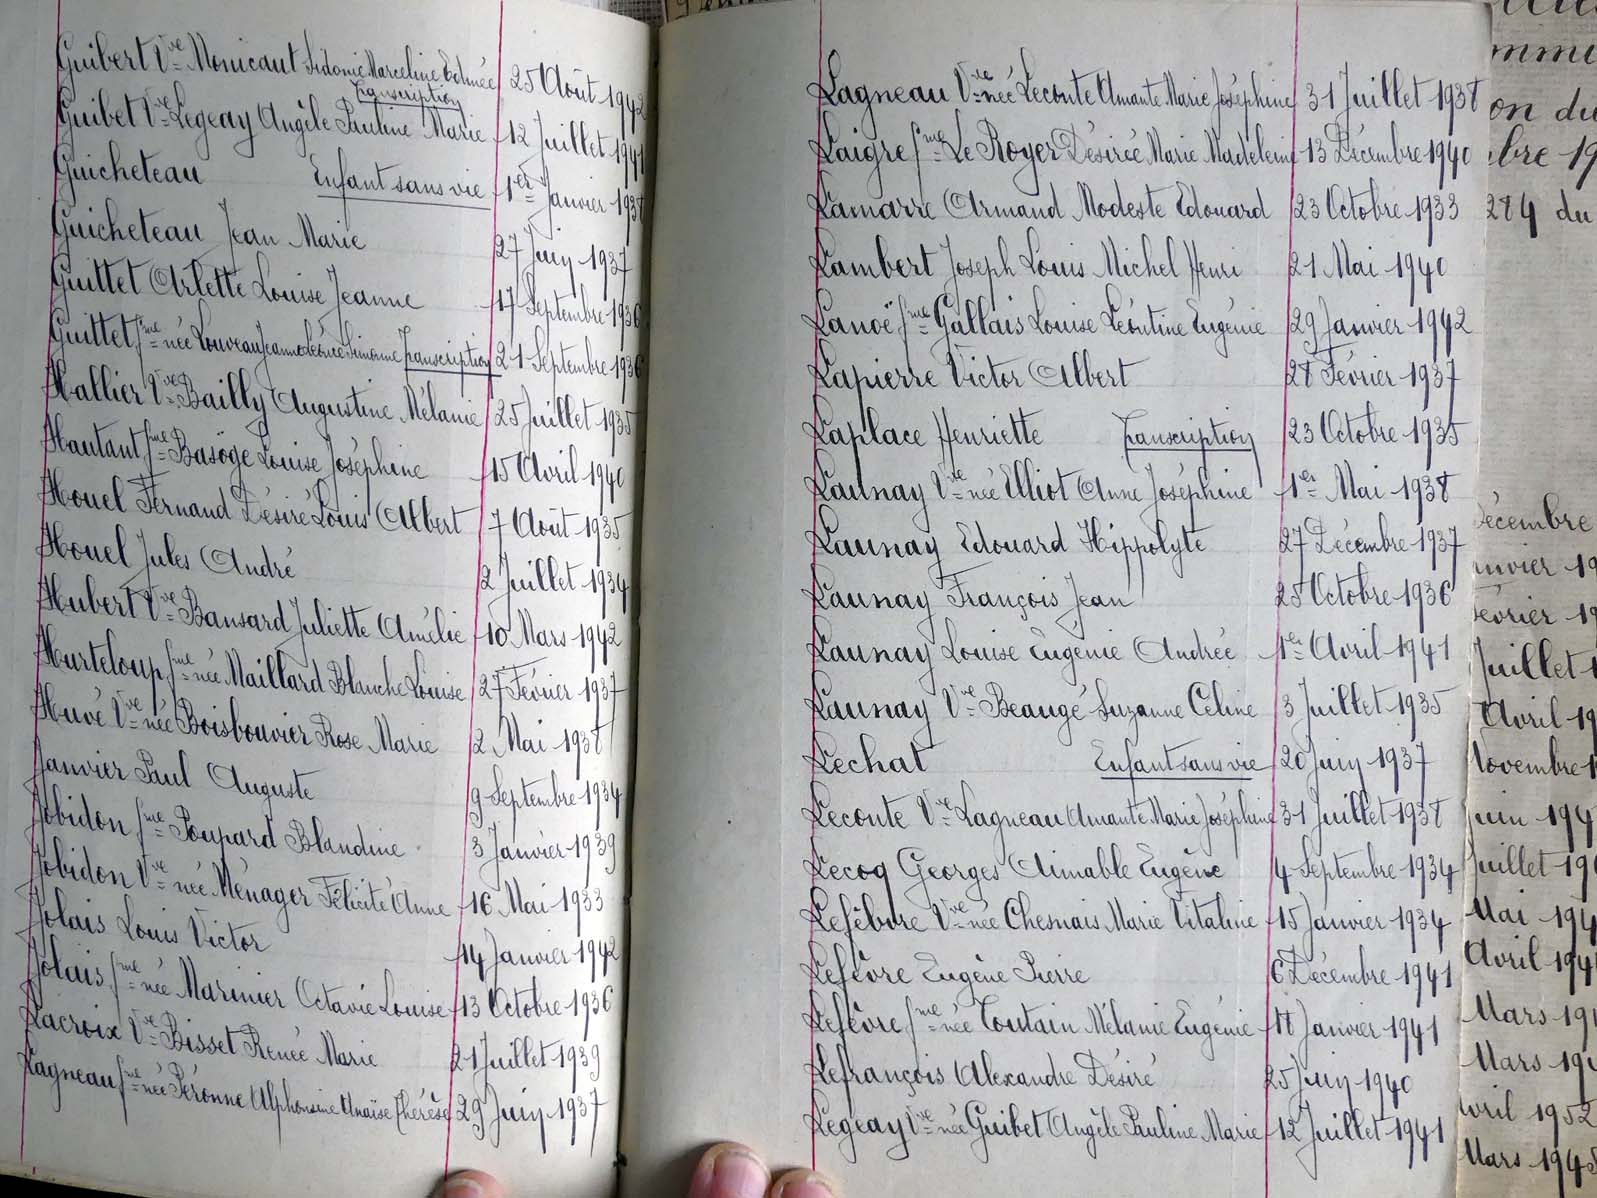 Guibert Vve Monicaut Sidonie Marceline Edmée 25 Août 1942
Transcription
Guibet Vve Legeay Angèle Pauline Marie 12 Juillet 1941
Guicheteau Enfant sans vie 1er Janvier 1938
Guicheteau Jean Marie 27 Juin 1937
Guittet Arlette Louise Jeanne 17 Septembre 1936
Guittet fme née Louveau Jeanne Désirée Simonne Transcription 21 Septembre 1936
Hallier Vve Bailly Augustine Mélanie 25 Juillet 1935
Hautant fme Basoge Louise Joséphine 15 Avril 1940
Houel Fernand Désiré Louis Albert 7 Août 1935
Houel Jules André 2 Juillet 1934
Hubert Vve Bansard Juliette Amélie 10 Mars 1942
Hurteloup fme née Maillard Blanche Louise 27 Février 1937
Huvé Vve née Boisbouvier Rose Marie 2 Mai 1938
Janvier Paul Auguste 9 Septembre 1934
Jobidon fme Poupard Blandine 3 Janvier 1939
Jobidon Vve née Ménager Félicité Anne 16 Mai 1933
Jolais Louis Victor 14 Janvier 1942
Jolais fme née Marinier Octavie Louise 13 Octobre 1936
Lacroix Vve Bisset Renée Marie 21 Juillet 1939
Lagneau fme née Péronne Alphonsine Anaïse Thérèse 29 Juin 1937
Lagneau Vve née Leconte Amante Marie Joséphine 31 Juillet 1938
Laigre fme Le Royer Désirée Marie Madeleine 13 Décembre 1940
Lamarre Armand Modeste Edouard 23 Octobre 1933
Lambert Joseph Louis Michel Henri 21 Mai 1940
Lanoë fme Gallais Louise Léontine Eugénie 29 Janvier 1942
Lapierre Victor Albert 28 Février 1937
Laplace Henriette Transcription 23 Octobre 1935
Launay Vve née Elliot Anne Joséphine 1er Mai 1938
Launay Edouard Hippolyte 27 Décembre 1937
Launay François Jean 25 Octobre 1936
Launay Louise Eugénie Andrée 1er Avril 1941
Launay Vve Beaugé Suzanne Celine 3 Juillet 1935
Lechat Enfant sans vie 20 Juin 1937
Leconte Vve Lagneau Amante Marie Joséphine 31 Juillet 1938
Lecoq Georges Aimable Eugène 4 Septembre 1934
Lefébvre Vve née Chesnais Marie Vitaline 15 Janvier 1934
Lefèvre Eugène Pierre 6 Décembre 1941
Lefèvre fme née Toutain Mélanie Eugénie 11 Janvier 1941
Lefrançois Alexandre Désiré 25 Juin 1940
Legeay Vve née Guibet Angèle Pauline Marie 12 Juillet 1941
on du
284 du
Décembre
Juillet
Avril 19
Novembre
Juillet
Mai 194
Avril 194
Mars 19
Mars 19
Avril 1952
Mars 1948